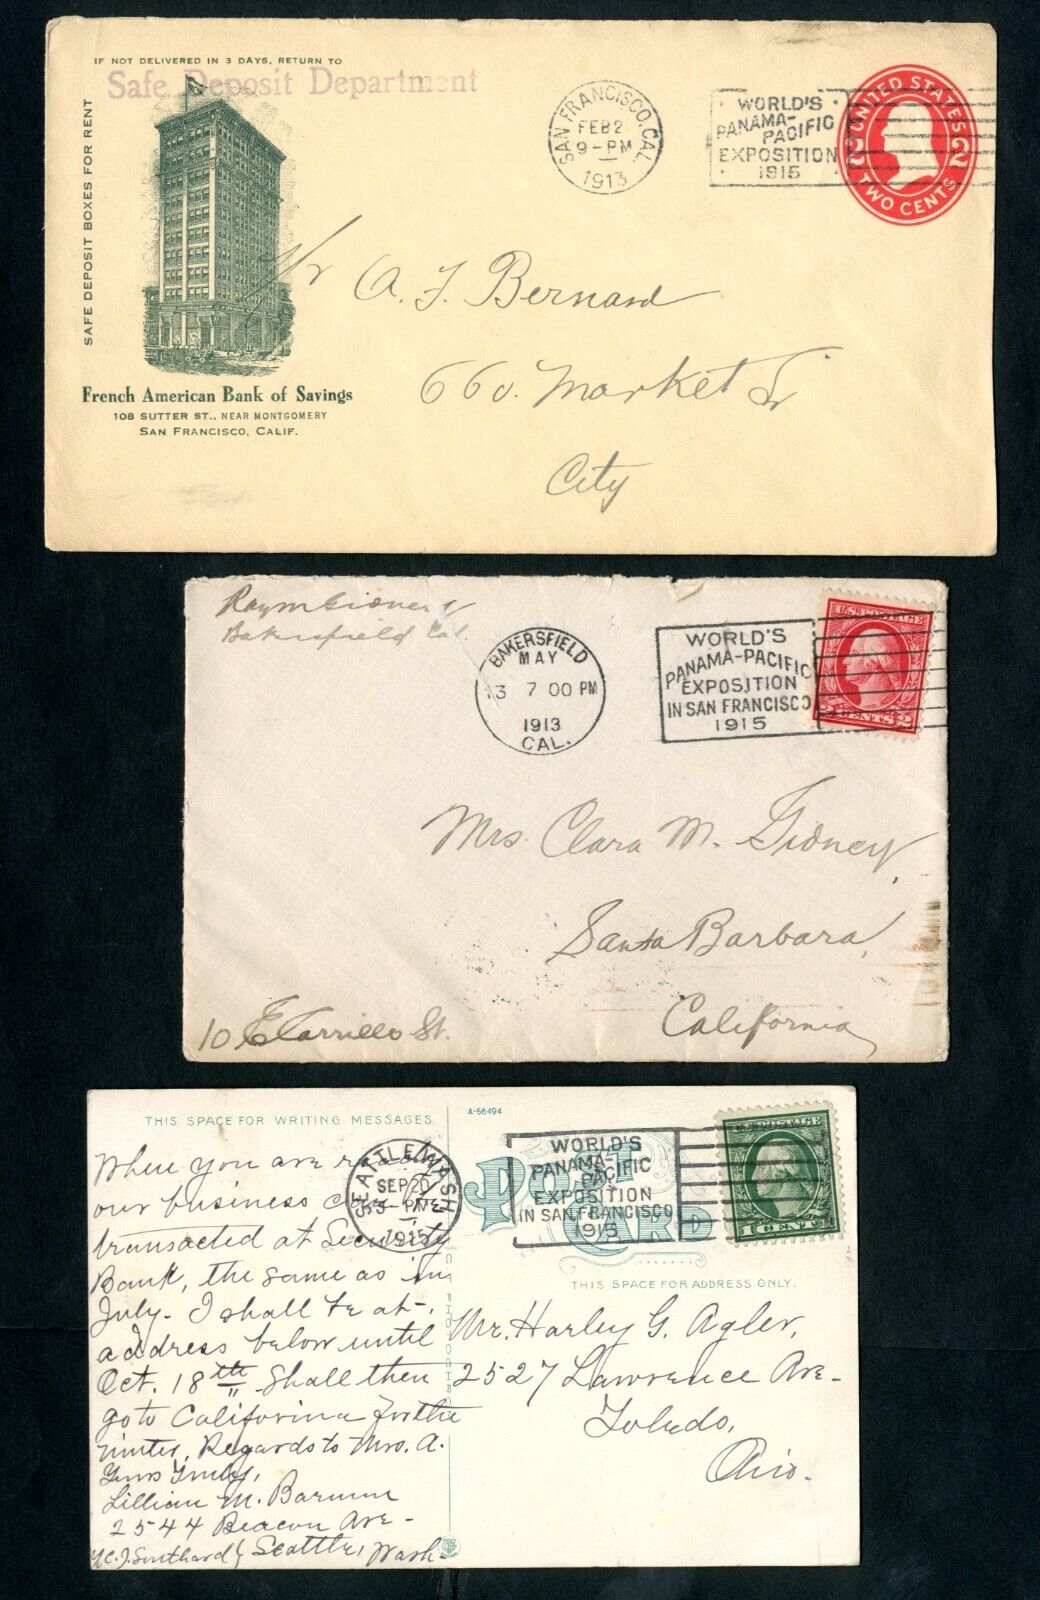 IF NOT DELIVERED IN 3 DAYS, RETURN TO
Safe Deposit Department
SAFE DEPOSIT BOXES FOR RENT
French American Bank of Savings
108 SUTTER ST., NEAR MONTGOMERY
SAN FRANCISCO, CALIF.
SAN FRANCISCO, CAL.
FEB 2
9-PM
1913
WORLD'S
PANAMA-
PACIFIC
EXPOSITION
1915
UNITED STATES
2 2
TWO CENTS
A. F. Bernard
660 Market St
City
Bakersfield Cal.
BAKERSFIELD
MAY
13 7 00 PM
1913
CAL.
WORLD'S
PANAMA-PACIFIC
EXPOSITION
IN SAN FRANCISCO
1915
U.S. POSTAGE
2 CENTS 2
Mrs. Clara M. Gidney,
Santa Barbara,
California
10 E Carrillo St.
THIS SPACE FOR WRITING MESSAGES
A-56494
POST CARD
SEATTLE, WASH
SEP 20
3-PM
1915
WORLD'S
PANAMA-
PACIFIC
EXPOSITION
IN SAN FRANCISCO
1915
U.S. POSTAGE
1 CENT 1
THIS SPACE FOR ADDRESS ONLY.
When you are
our business
transacted at Security
Bank, the same as in
July. I shall be at
address below until
Oct. 18th. Shall then
go to California for the
winter. Regards to Mrs. A.
Yours Truly,
Lillian M. Barnum
2544 Beacon Ave-
Seattle, Wash-
Mr. Harley G. Agler,
2527 Lawrence Ave-
Toledo,
Ohio.